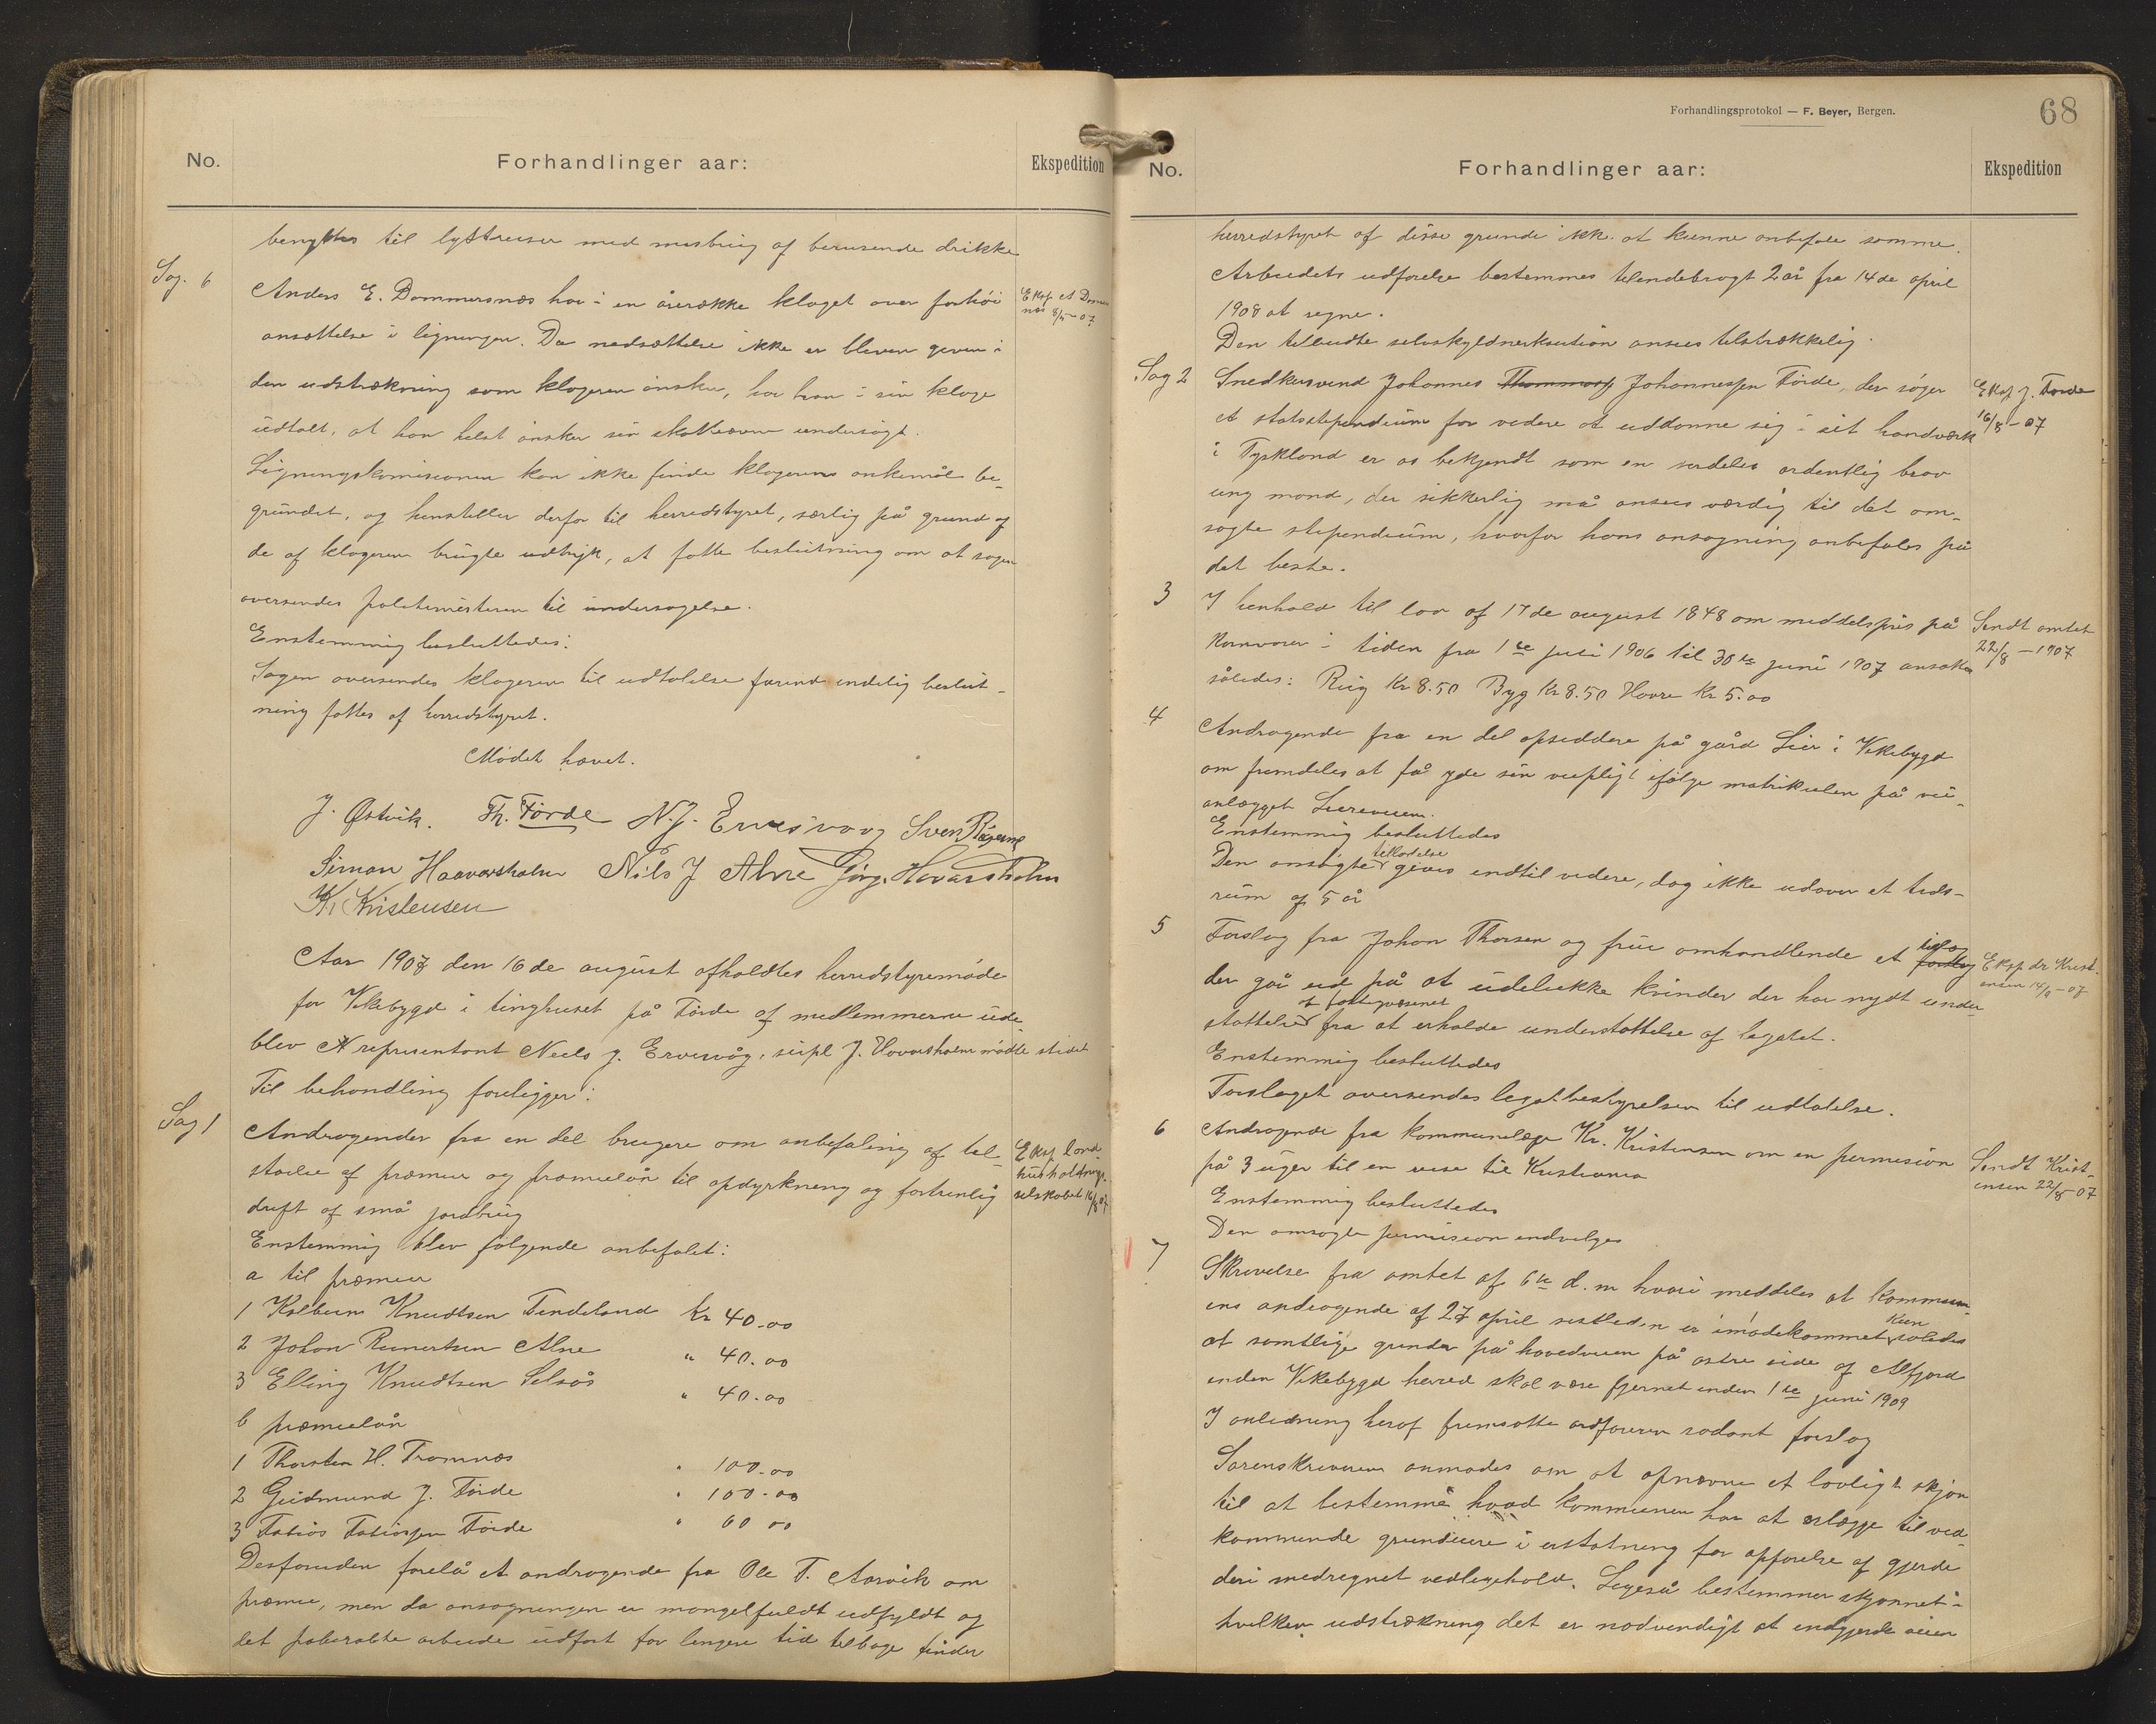 No.
Forhandlinger aar:
Ekspedition
benyttes til lystreiser med misbrug af berusende drikke
Sag. 6
Anders E. Dommersnæs har i en årrække klaget over forhøi
Eksp. A Dommers
næs 8/5-07
ansættelse i ligningen. Da nedsættelse ikke er bleven given i
den udstrækning som klageren ønsker, har han i sin klage
udtalt, at han helst ønsker sin skatteævne undersøgt.
Ligningskomisionen kan ikke finde klagerens ankemål be-
grundet, og henstiller derfor til herredstyret, særlig på grund af
de af klageren brugte udtryk, at fatte beslutning om at sagen
oversendes politimesteren til undersøgelse.
Enstemmig besluttedes:
Sagen oversendes klageren til udtalelse førend endelig beslut-
ning fattes af herredstyret.
Mødet hævet.
J. Østvik. Th. Førde N. J. Ervesvaag Sven
Simon Haavarsholm Nils J Alne Jørg. Havarsholm
Kr Kristensen
Aar 1907 den 16de august afholdtes herredstyremøde
for Vikebygd i tinghuset på Førde af medlemmerne ude
blev repræsentant Neels J. Ervesvåg, supl J. Hovarsholm mødte istedet
Til behandling foreligger:
Sag 1
Andragender fra en del brugere om anbefaling af til-
Eksp land
hushholdnings-
selskabet 16/8 07
ståelse af præmier og præmielån til opdyrkning og fortrinlig
drift af små jordbrug
Enstemmig blev følgende anbefalet:
a til præmier
1 Kolbein Knudtsen Tindeland kr 40.00
2 Johan Reinertsen Alne " 40.00
3 Elling Knudtsen Selsås " 40.00
b præmielån
1 Thorsten H. Tromnæs " 100.00
2 Gudmund J. Førde " 100.00
3 Tobias Tobiassen Førde " 60 00
Desforuden forelå et andragende fra Ole T. Aarvik om
præmie, men da ansøgningen er mangelfuldt udfyldt og
det påberabte arbeide udført for længere tid tilbage finder
Forhandlingsprotokol — F. Beyer, Bergen.
68
No.
Forhandlinger aar:
Ekspedition
herredstyret af disse grunde ikke at kunne anbefale samme.
Arbeidets udførelse bestemmes tilendebragt 2 år fra 14de april
1908 at regne.
Den tilbudte selvskyldnerkaution ansees tilstrækkelig.
Sag 2
Snedkersvend Johannes Thommas Johannessen Førde, der søger
Eksp J. Førde
16/8-07
et statsstipendium for videre at uddanne sig i sit handværk
i Tyskland er os bekjendt som en særdeles ordentlig brav
ung mand, der sikkerlig må ansees værdig til det om-
søgte stipendium, hvorfor hans ansøgning anbefales på
det beste.
3
I henhold til lov af 17de august 1848 om middelspris på
Sendt amtet
22/8-1907
kornvarer i tiden fra 1ste juli 1906 til 30te juni 1907 ansættes
således: Rug Kr 8.50 Byg Kr 8.50 Havre Kr 5.00
4
Andragende fra en del opsiddere på gård Lier i Vikebygd
om fremdeles at få yde sin veipligt ifølge matrikulen på vei-
anlægget Liereveien.
Enstemmig besluttedes
Den ansøgte tilladelse gives indtil videre, dog ikke udover et tids-
rum af 5 år
5
Forslag fra Johan Thorsen og frue omhandlende et tillæg forslag
Eksp dr Krist-
ensen 14/9-07
der går ud på at udelukke kvinder der har nydt under
støttelse af fattigvæsenet fra at erholde understøttelse af legatet.
Enstemmig besluttedes
Forslaget oversendes legatbestyrelsen til udtalelse.
6
Andragende fra kommunelæge Kr. Kristensen om en permision
Sendt Krist-
ensen 22/8-07
på 3 uger til en reise til Kristiania
Enstemmig besluttedes
Den ansøgte permision indvilges
7
Skrivelse fra amtet af 6te d.m hvori meddeles at kommun-
ens andragende af 27 april sidstleden er imødekommet kun således
at samtlige grinder på hovedveien på østre side af Ålfjord
inden Vikebygd herred skal være fjernet inden 1ste juni 1909
I anledning heraf fremsatte ordføreren sådant forslag
Sorenskriveren anmodes om at opnævne et lovligt skjøn
til at bestemme hvad kommunen har at erlægge til ved-
kommende grundeiere i erstatning for opførelse af gjerde
deri medregnet vedligehold. Ligeså bestemmer skjønnet i
hvilken udstrækning det er nødvendigt at indgjerde veien